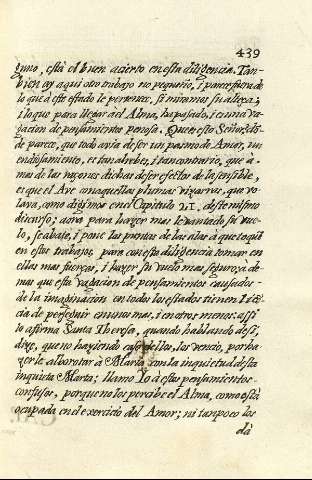 439
guno, està el buen acierto en esta diligencia. Tan-
bien ay aqui otro trabajo no pequeño, i parece fuera de
lo que a este estado le pertenece, si miramos su alteza;
i lo que para llegar à el Alma, ha pasado, i es una va-
gacion de pensamientos penosa. Que en esto Señor, dò-
de parece, que todo avia de ser un pasmo de Amor, un
endiosamiento, es tan al rebes, i tan contrario, que a-
mas de las raçones dichas de ser efectos de lo sensible,
es que el Ave en aquellas plumas rizarras, que vo-
lava, como digimos en el Capitulo 21. deste mismo
discurso; aora para hazer mas levantado su vue-
lo, se abate, i pone las puntas de las alas à que toquẽ
en estos trabajos, para con esta diligencia tomar en
ellos mas fuerças, i hazer su vuelo mas seguro; a de-
mas que esta vagacion de pensamientos causados
de la imaginacion en todos los estados tienen licẽ-
cia de perseguir en unos mas, i en otros menos. assi
lo afirma Santa Theresa, quando hablando de si,
dize, que no haziendo caso de ellos, los vencio, por ha-
zerle alborotar à Maria con la inquietud desta
inquieta Marta; llamo Yo à estos pensamientos
confusos, porque no los percibe el Alma, como està
ocupada en el exercicio del Amor; ni tanpoco los
dà